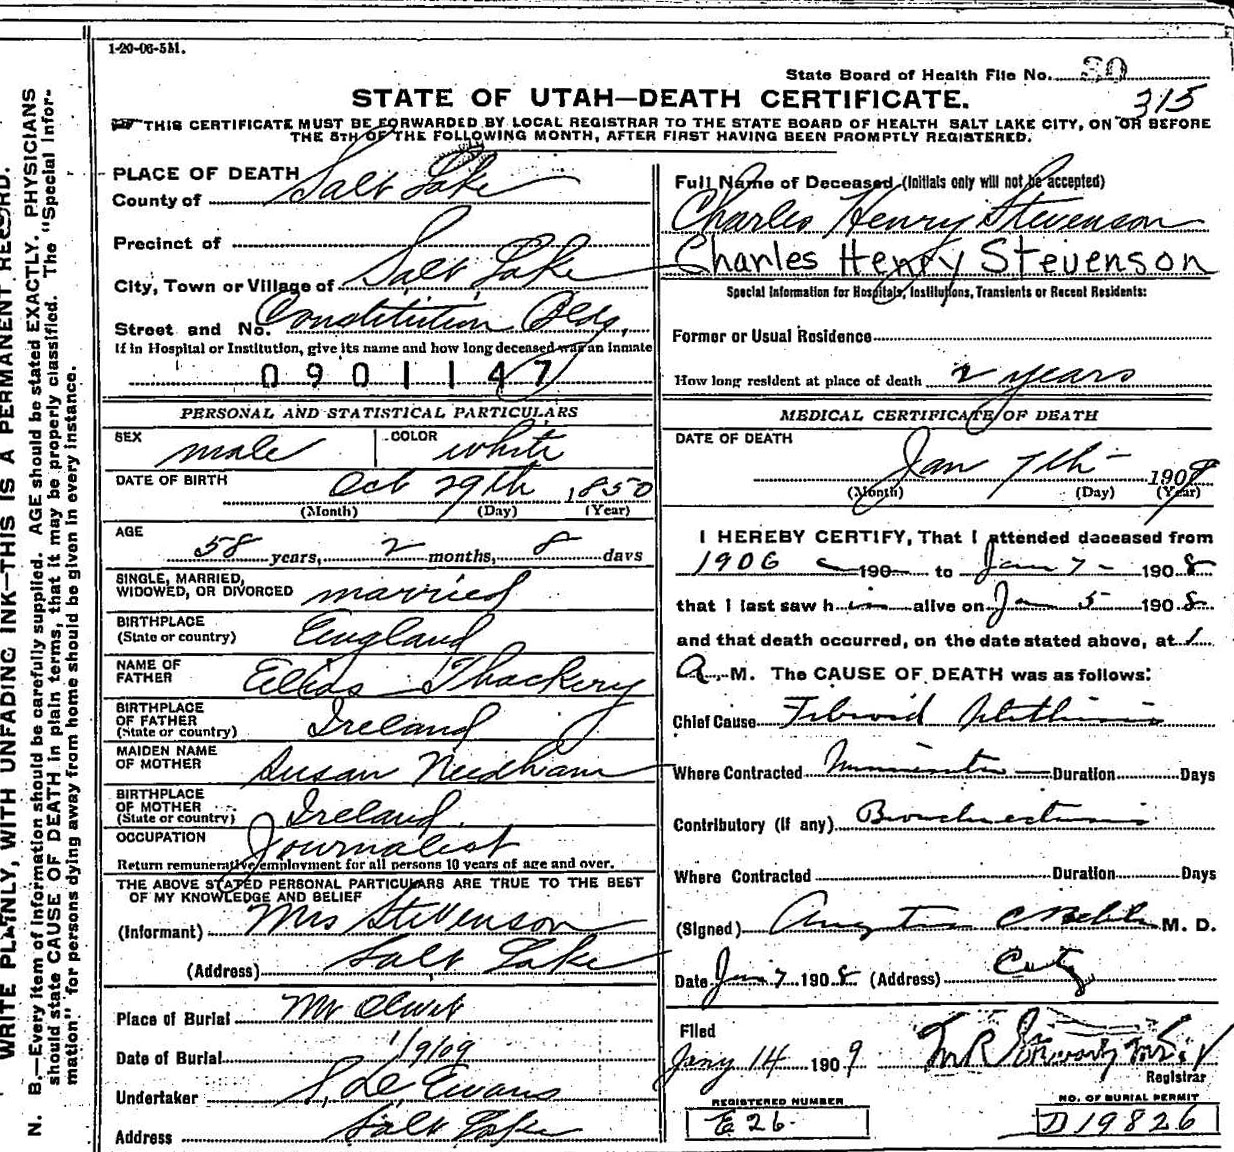 1-20-06-5M.
State Board of Health File No. 30
315
STATE OF UTAH—DEATH CERTIFICATE.
THIS CERTIFICATE MUST BE FORWARDED BY LOCAL REGISTRAR TO THE STATE BOARD OF HEALTH SALT LAKE CITY, ON OR BEFORE
THE 5TH OF THE FOLLOWING MONTH, AFTER FIRST HAVING BEEN PROMPTLY REGISTERED.
PLACE OF DEATH
County of Salt Lake
Precinct of
City, Town or Village of Salt Lake
Street and No. Constitution Bldg.
If in Hospital or Institution, give its name and how long deceased was an inmate
0901147
PERSONAL AND STATISTICAL PARTICULARS
SEX male COLOR white
DATE OF BIRTH Oct 29th 1850
(Month) (Day) (Year)
AGE
58 years, 2 months, 8 days
SINGLE, MARRIED,
WIDOWED, OR DIVORCED married
BIRTHPLACE
(State or country) England
NAME OF
FATHER Elias Thackery
BIRTHPLACE
OF FATHER
(State or country) Ireland
MAIDEN NAME
OF MOTHER Susan Needham
BIRTHPLACE
OF MOTHER
(State or country) Ireland
OCCUPATION Journalist
Return remunerative employment for all persons 10 years of age and over.
THE ABOVE STATED PERSONAL PARTICULARS ARE TRUE TO THE BEST
OF MY KNOWLEDGE AND BELIEF
(Informant) Mrs Stevenson
(Address) Salt Lake
Place of Burial Mt Olivet
Date of Burial 1/9/09
Undertaker S. D. Evans
Address Salt Lake
Full Name of Deceased (Initials only will not be accepted)
Charles Henry Stevenson
Charles Henry Stevenson
Special Information for Hospitals, Institutions, Transients or Recent Residents:
Former or Usual Residence
How long resident at place of death 2 years
MEDICAL CERTIFICATE OF DEATH
DATE OF DEATH
Jan 7th 1909
(Month) (Day) (Year)
I HEREBY CERTIFY, That I attended daceased from
1906 190 to Jan 7 - 1908
that I last saw him alive on Ja 5 1908
and that death occurred, on the date stated above, at 1
A. M. The CAUSE OF DEATH was as follows:
Chief Cause Fibroid Phthisis
Where Contracted Duration Days
Contributory (if any) Bronchiectasis
Where Contracted Duration Days
(Signed) M. D.
Date Jan 7 1908 (Address) City
Filed
Jany 14 1909
Registrar
REGISTERED NUMBER
E 26.
NO. OF BURIAL PERMIT
D 19826
WRITE PLAINLY, WITH UNFADING INK—THIS IS A PERMANENT RECORD.
N. B.—Every item of information should be carefully supplied. AGE should be stated EXACTLY. PHYSICIANS
should state CAUSE OF DEATH in plain terms, that it may be properly classified. The "Special Infor-
mation" for persons dying away from home should be given in every instance.